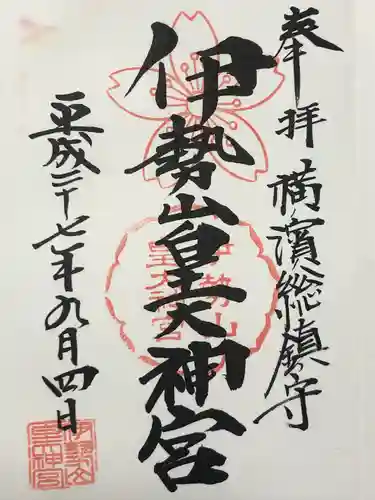 奉拝 横濱総鎮守
伊勢山皇大神宮
平成二十七年九月四日
伊勢山
皇大神宮
伊勢山
皇神宮